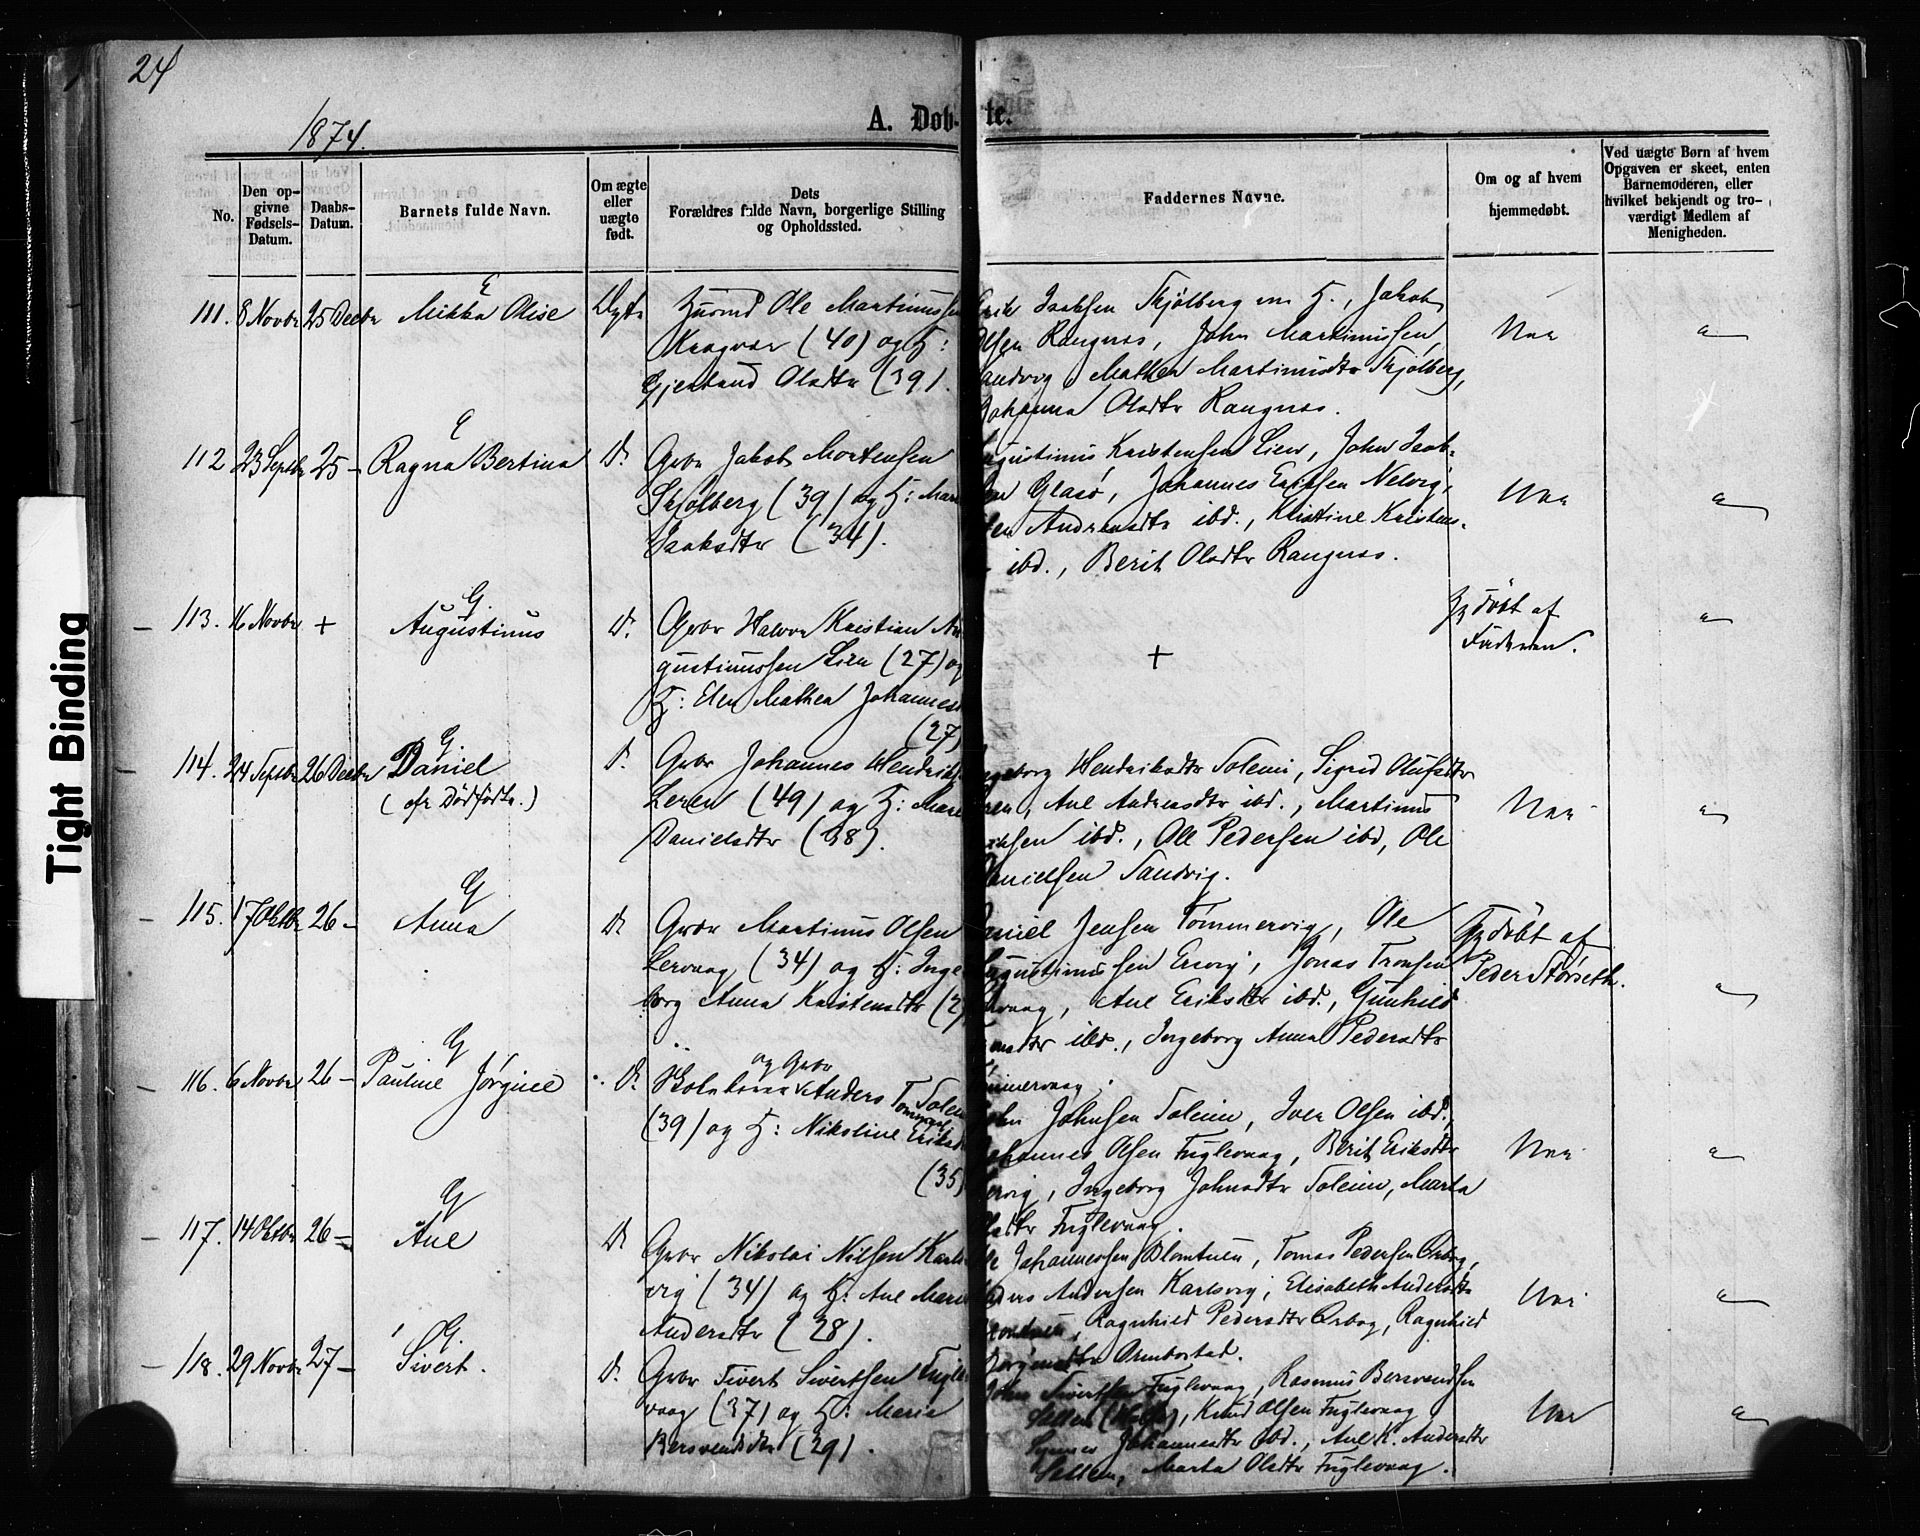 24
1874.
A. Døb- te.
No.
Den op-
givne
Fødsels-
Datum.
Daabs-
Datum.
Barnets fulde Navn.
Om ægte
eller
uægte
født.
Dets
Forældres fulde Navn, borgerlige Stilling
og Opholdssted.
Faddernes Navne.
Om og af hvem
hjemmedøbt.
Ved uægte Børn af hvem
Opgaven er skeet, enten
Barnemoderen, eller
hvilket bekjendt og tro-
værdigt Medlem af
Menigheden.
111. 8 Novbr 25 Decbr Mikka Olise Ægte
Husmd Ole Martinussen
Kragvær (40) og H:
Gjertrud Olsdtr (39).
Erik Isaksen Skjølberg m H., Jakob
Olsen Rangnæs, John Martinussen
Sandvig, Mathea Martinusdtr Skjølberg,
Johanna Olsdtr Rangnæs.
Nei
112 23 Septbr 25 – Ragna Bertina D.
Gbr Jakob Mortensen
Skjølberg (39) og H: Mar
Isaksdtr (34).
Augustinus Kristensen Lien, John Isak-
sen Glasø, Johannes Eriksen Nelvig,
Andreasdtr ibd., Kristine Kristens-
ibd., Berit Olsdtr Rangnæs.
Nei
113. 16 Novbr + Augustinus D.
Gbr Halvor Kristian Au
gustinussen Lien (27) og
H: Elen Mathea Johannes
(27)
+
Hj døbt af
Faderen.
114. 24 Septbr 26 Decbr Daniel
(cfr Dødfødte.)
D.
Gbr Johannes Hendrik
Leren (49) og H: Mar
Danielsdtr (38).
Ingeborg Hendriksdtr Soleim, Sigrid Olufsdtr
Leren, Ane Andreasdtr ibd., Martinus
ibd., Ole Pedersen ibd, Ole
Danielsen Sandvig.
Nei
115. 17 Oktbr 26 – Anna D.
Gbr Martinus Olsen
Lervaag (34) og H: Inge
borg Anna Kristensdtr (2
Daniel Jensen Tømmervig, Ole
Augustinussen Ervig, Jonas Tronsen
Lervaag, Ane Eriksdtr ibd., Gunhild
ibd., Ingeborg Anna Pedersdtr
Hj døbt af
Peder Størseth.
116. 6 Novbr 26 – Pauline Jørgine D.
og Gbr
Anders Tommesen Solem
(39) og H: Nikoline Eriksd
(35)
John Johnsen Soleim, Iver Olsen ibd,
Johannes Olsen Fuglevaag, Berit Eriksdtr
Ervig, Ingeborg Johnsdtr Soleim, Marta
Olsdtr Fuglevaag.
Nei
117. 14 Oktbr 26 – Ane D.
Gbr Nikolai Nilsen Karls
vig (34) og H: Ane Mar
Andersdtr (28).
Ole Johannessen Blomtuen, Tomas Pedersen Orbog,
Anders Andersen Karlsvig, Elisabeth Andersdtr
Ragnhild Pedersdtr Orbog, Ragnhild
Jørgensdtr Ormbostad.
Nei
118. 29 Novbr 27 – Sivert. D.
Gbr Sivert Sivertsen Fugle
vaag (37) og H: Marie
Bersvendsdtr (29).
John Sivertsen Fuglevaag, Rasmus Bersvendsen
Sætten, Knud Olsen Fuglevaag
Johannesdtr ibd., Ane K. Andersdtr
Sætten, Marta Olsdtr Fuglevaag.
Nei
Tight Binding